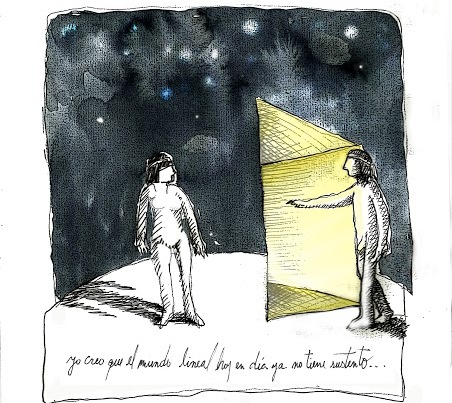 yo creo que el mundo lineal hoy en día ya no tiene sustento...